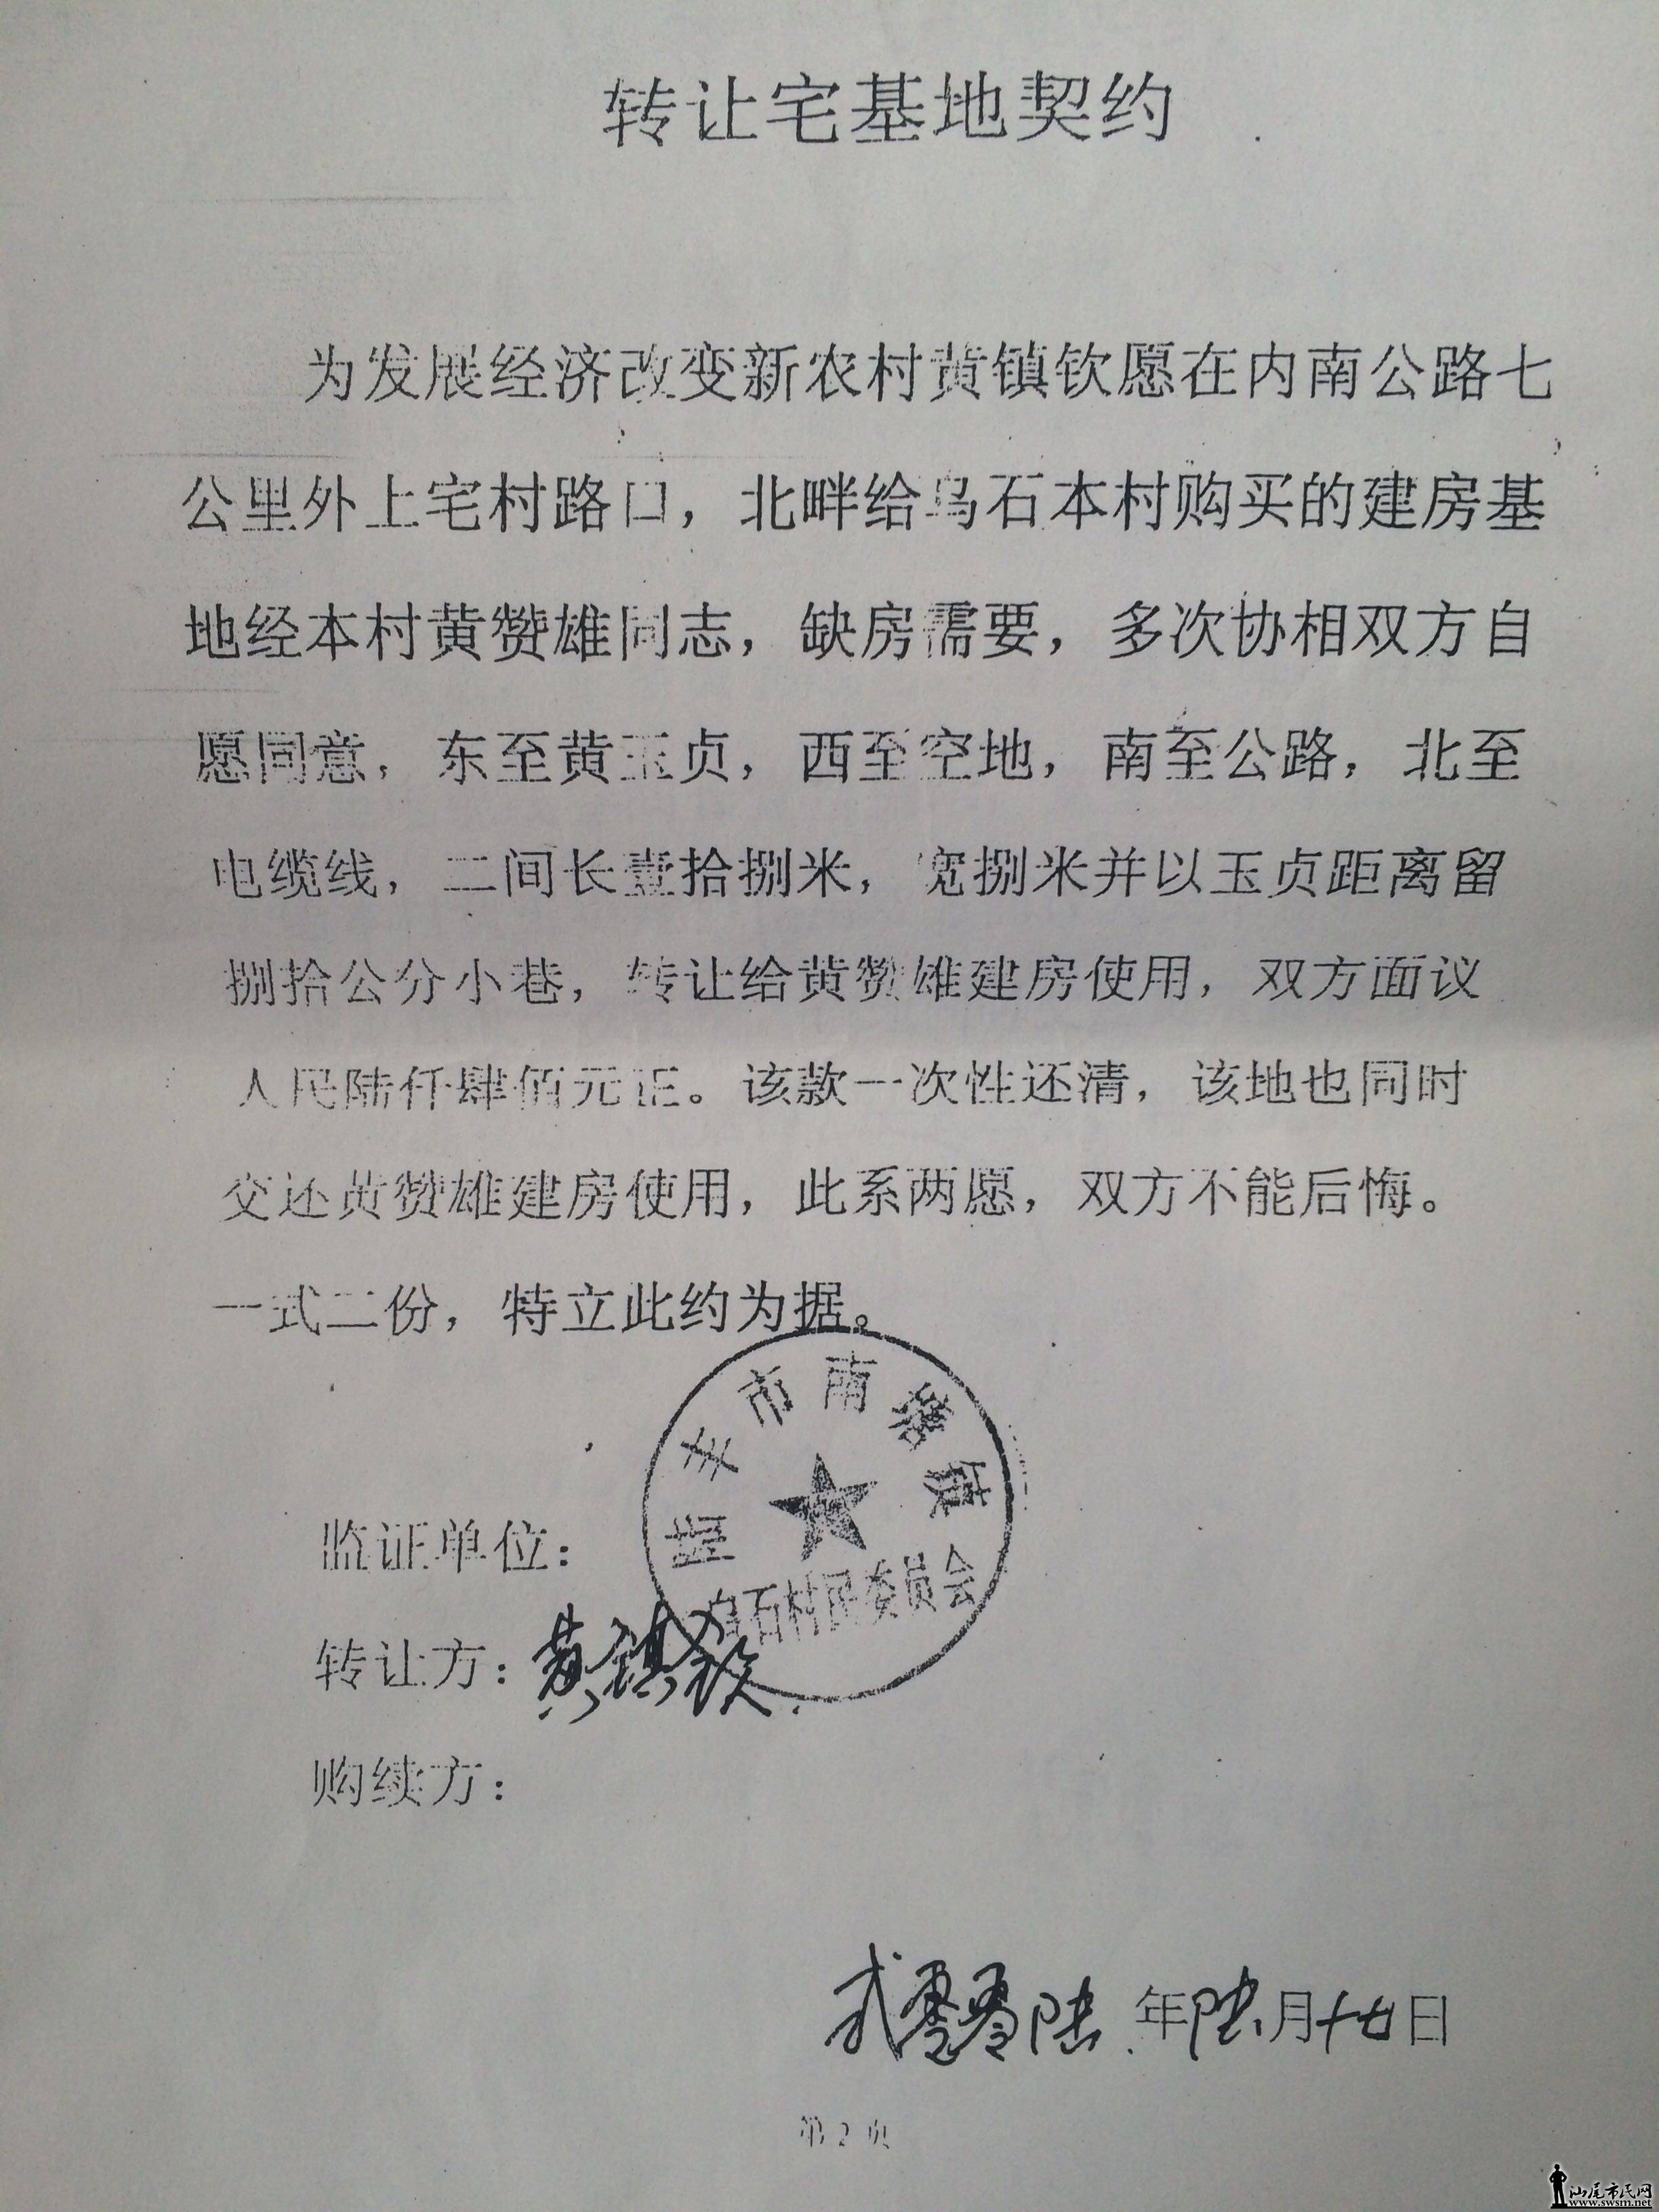 转让宅基地契约
为发展经济改变新农村黄镇钦愿在内南公路七
公里外上宅村路口，北畔给乌石本村购买的建房基
地经本村黄赞雄同志，缺房需要，多次协相双方自
愿同意，东至黄玉贞，西至空地，南至公路，北至
电缆线，二间长壹拾捌米，宽捌米并以玉贞距离留
捌拾公分小巷，转让给黄赞雄建房使用，双方面议
人民陆仟肆佰元正。该款一次性还清，该地也同时
交还黄赞雄建房使用，此系两愿，双方不能后悔。
一式二份，特立此约为据。
市南塘镇
乌石村民委员会
监证单位：
转让方：黄镇钦
购续方：
贰零零陆年陆月十七日
第2页
汕尾市民网
www.swsm.net